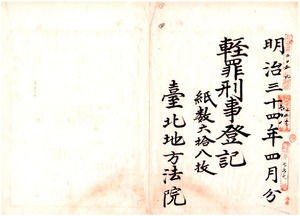 明治三十四年四月分
輕罪刑事登記
紙数六拾八枚
臺北地方法院